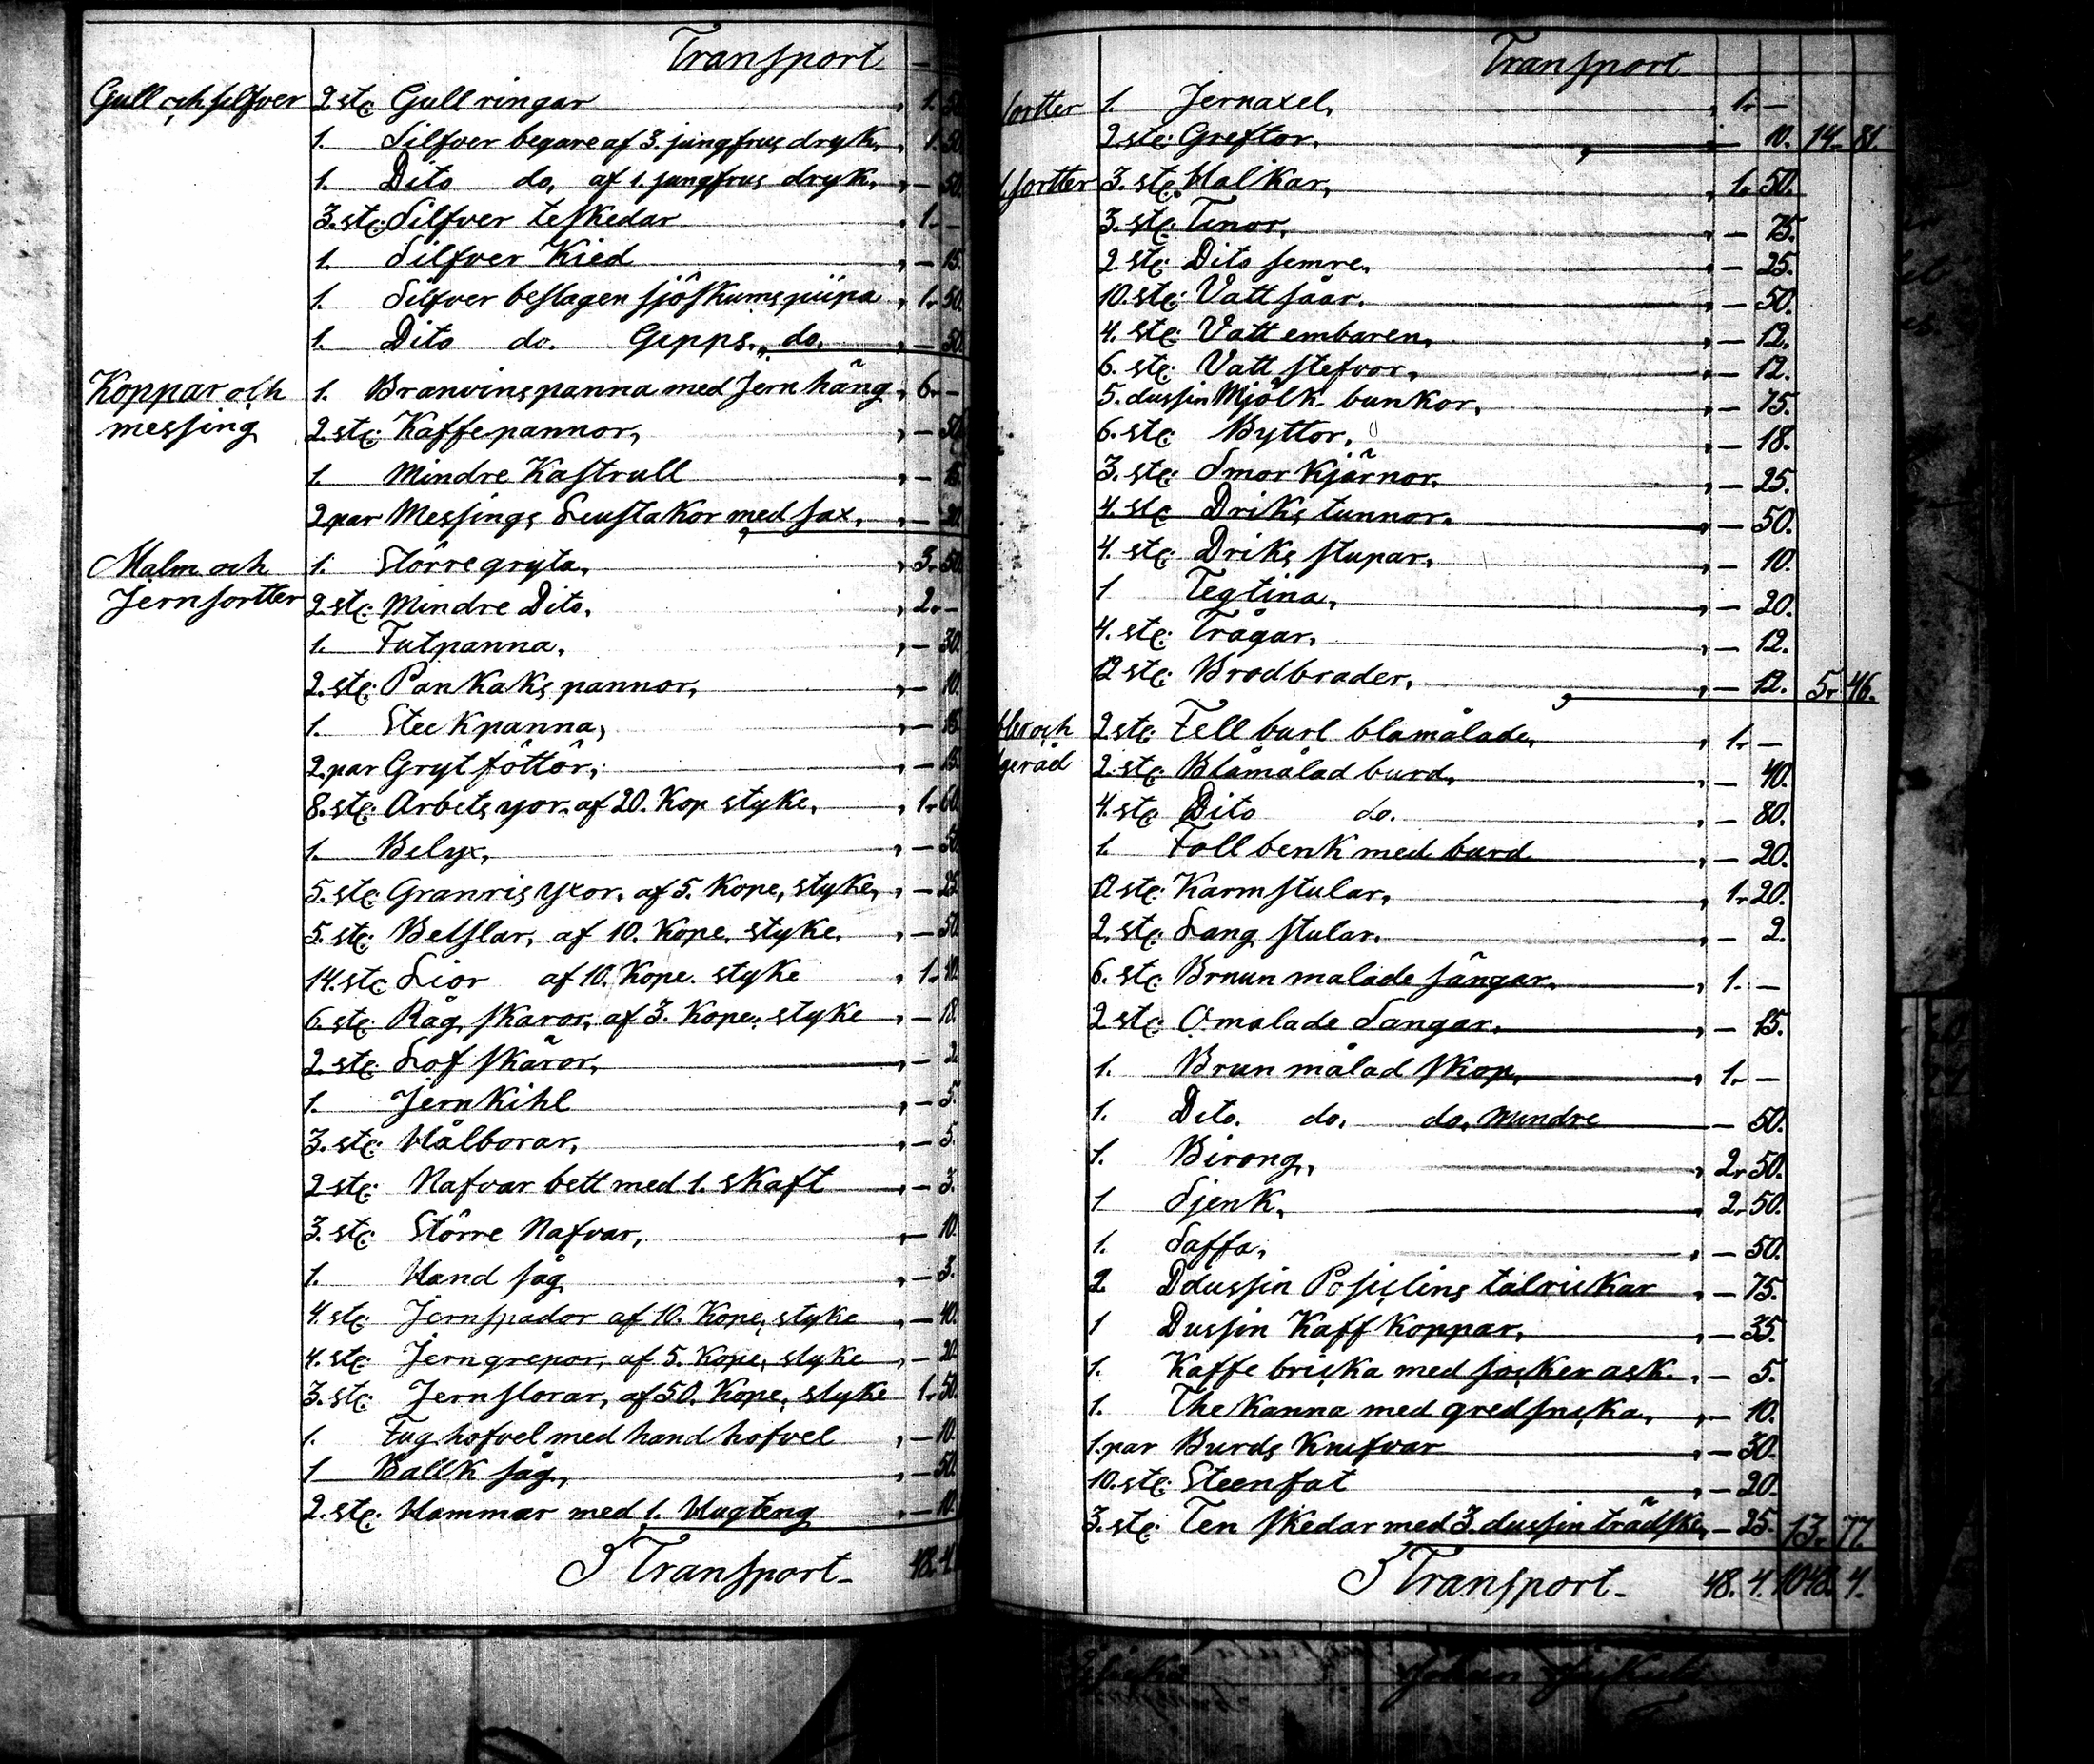 Transport
Gull och silfver 2 st: Gull ringar 1. 50
1. Silfver begare af 3. jungfrus dryk, 1. 50
1. Dito do, af 1. jungfrus dryk, — 50.
3. st: Silfver teskedar 1. —
1. Silfver Kied — 15.
1. Silfver beslagen sjöskums piipa 1. 50.
1. Dito do. Gipps., do, — 50.
Koppar och 1. Branvins panna med Jern häng 6. —
messing 2. st: Kaffe pannor, — 50
1. Mindre Kastrull — 15.
2 par Messings Liustakor med sax, — 20.
Malm och 1. Större gryta, 3. 50.
Jern sortter 2. st: Mindre Dito, 2. —
1. Fatpanna, — 30.
2. st: Pankaks pannor, — 10.
1. Steekpanna, — 15
2. par Gryt föttör, — 15.
8. st: Arbets yxor. af 20. Kop styke, 1. 60.
1. Belyx, — 50.
5. st: Granris yxor, af 5. Kope, styke, — 25
5. st: Betslar, af 10. Kope, styke, — 50.
14. st: Lior af 10. Kope. styke 1. 40.
6. st: Råg skaror, af 3. Kope, styke — 18.
2. st: Löf skäror, — 2.
1. Jern Kihl — 5.
3. st: Hålborar, — 5.
2 st: Nafvar bett med 1. skaft — 3.
3. st: Större Nafvar, — 10.
1. Hand såg — 3.
4. st: Jernspador af 10. Kope, styke — 40.
4. st: Jerngrepor, af 5. Kope, styke — 20.
3. st: Jernstorar, af 50. Kope, styke 1. 50.
1. Fug hofvel med hand hofvel — 10.
1 Ballk såg, — 50.
2. st: Hammar med 1. Hugteng — 10.
Transport 48. 4.
Transport
sortter 1. Jernaxel, 1. —
2. st: Greftor, 10. 14. 81.
sortter 3. st: Hal Kar, 1. 50.
3. st: Tinor, — 75.
2 st: Dito semre, — 25.
10. st: Vatt såar, — 50.
4. st: Vatt embaren, — 12.
6. st: Vatt stefvor, — 12.
5. dussin Mjölk bunkor, — 75.
6. st: Byttor, — 18.
3. st: Smor Kjärnor, — 25.
4. st: Driks tunnor, — 50.
4. st: Driks stupar, — 10.
1 Tegtina, — 20.
4. st: Trågar, — 12.
12 st: Brodbrader, — 12. 5. 46.
bler och 2 st: Fell burl blamålade, 1. —
geråd 2. st: Blåmålad burd, — 40.
4. st: Dito do. — 80.
1. Foll benk med burd — 20.
12 st: Karm stular, 1. 20.
2. st: Lang stular, — 2.
6. st: Brnun malade sängar, 1. —
2 st: Omalade Sangar, — 15.
1. Brun målad skop, 1. —
1. Dito. do, do, mindre — 50.
1. Birong, 2. 50.
1 Sjenk, 2. 50.
1. Saffa, — 50.
2. Ddussin Posulins talrickar — 75.
1 Dussin Kaff Koppar, — 35.
1. Kaffe bricka med socker ask. — 5.
1. The Kanna med gredsnecka, — 10.
1. par Burds Knifvar — 30.
10. st: Steenfat — 20.
3. st: Ten skedar med 3. dussin trädske, — 25. 13. 77.
Transport 48. 4. 1048. 4.
Johan